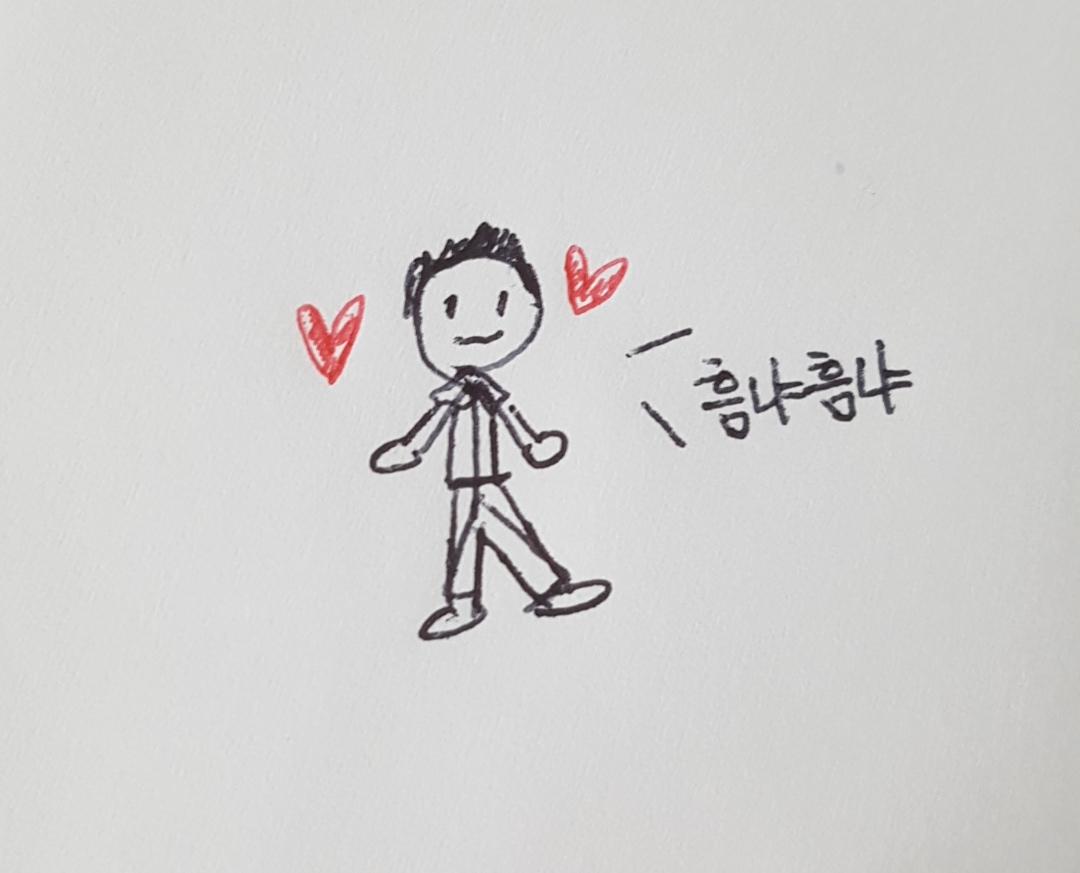 흠냐흠냐